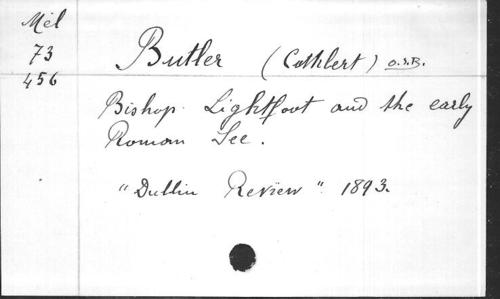 Mél
73
456
Butler (Cuthbert) O.S.B.
Bishop Lightfoot and the early
Roman See.
"Dublin Review" 1893.